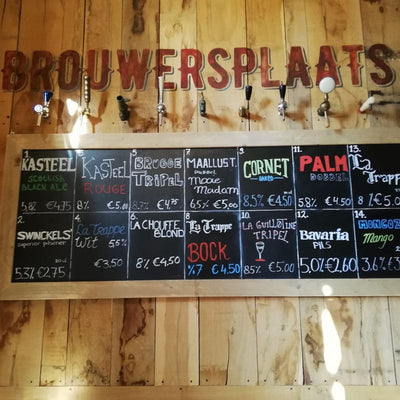 BROUWERSPLAATS
1.
KASTEEL
SCOTTISH
BLACK ALE
5,8% €4,75
3.
KASTEEL
ROUGE
8% €5,00
5.
BRUGGE
TRIPEL
8,7% €4,75
7.
MAALLUST.
Dubbel
Mooie
Madam
6,5% €5,00
9.
CORNET
OAKED
8,5% €4,50
11.
PALM
DOBBEL
5.8% €4,50
13.
La
Trappe
8% €5,00
2.
SWINCKELS'
superior pilsener
5,3% €2,75
4.
La Trappe
Wit 5,5%
€3,50
6.
LA CHOUFFE
BLOND
8% €4,50
8.
La Trappe
BOCK
%7 €4,50
10.
LA GUILLOTINE
TRIPEL
8.5% €5,00
12.
Bavaria
PILS
5,0% €2,60
14.
MONGOZO
Mango
3.6% €